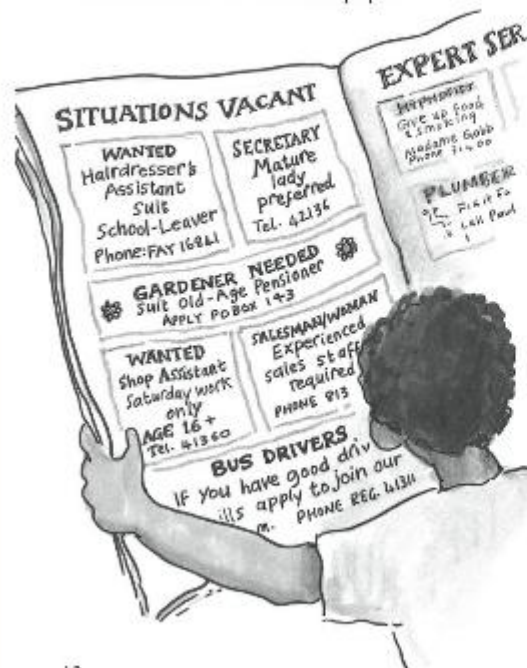 SITUATIONS VACANT
WANTED
Hairdresser's
Assistant
Suit
School-Leaver
Phone: FAY 16841
SECRETARY
Mature
lady
preferred
Tel. 42136
GARDENER NEEDED
Suit Old-Age Pensioner
APPLY PO BOX 143
WANTED
Shop Assistant
Saturday work
only
AGE 16+
Tel. 41360
SALESMAN/WOMAN
Experienced
sales staff
required
PHONE 813
BUS DRIVERS
IF you have good driv
ills apply to join our
m. PHONE REG. 41311
EXPERT SER
HYPNOTIST
Give up food
& smoking
Madame Gabb
Phone 71400
PLUMBER
Fix it Fa
Call Paul